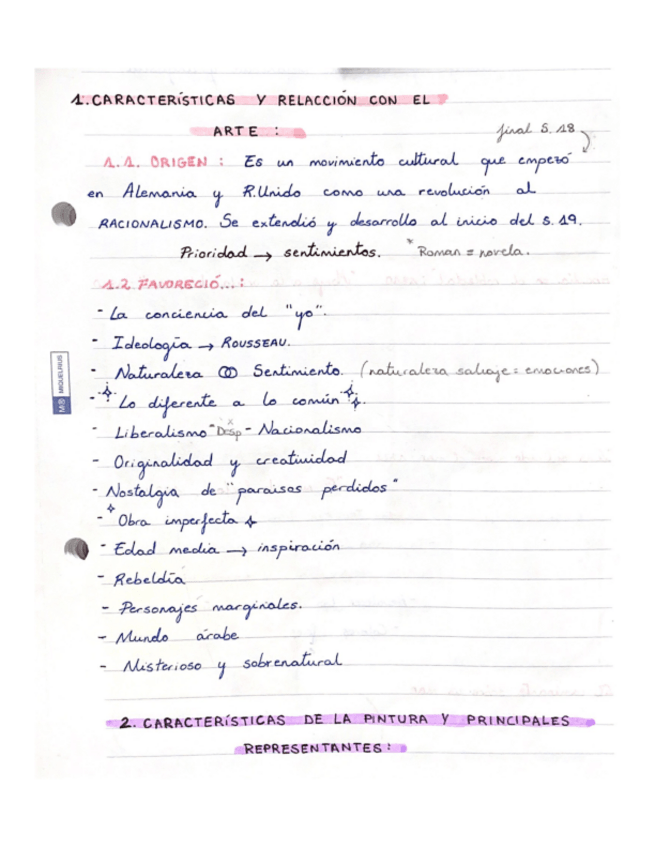 1. CARACTERÍSTICAS Y RELACCIÓN CON EL
ARTE :
final S. 18
1.1. ORIGEN : Es un movimiento cultural que empezó
en Alemania y R.Unido como una revolución al
RACIONALISMO. Se extendió y desarrollo al inicio del s. 19.
Prioridad → sentimientos. * Roman = novela.
1.2 FAVORECIÓ...:
- La conciencia del "yo".
- Ideología → ROUSSEAU.
- Naturaleza Sentimiento. (naturaleza salvaje = emociones)
- Lo diferente a lo común.
- Liberalismo - Desp - Nacionalismo
- Originalidad y creatividad
- Nostalgia de "paraisos perdidos"
- Obra imperfecta
- Edad media → inspiración
- Rebeldía
- Personajes marginales.
- Mundo árabe
- Misterioso y sobrenatural
2. CARACTERÍSTICAS DE LA PINTURA Y PRINCIPALES
REPRESENTANTES:
MIQUELRIUS